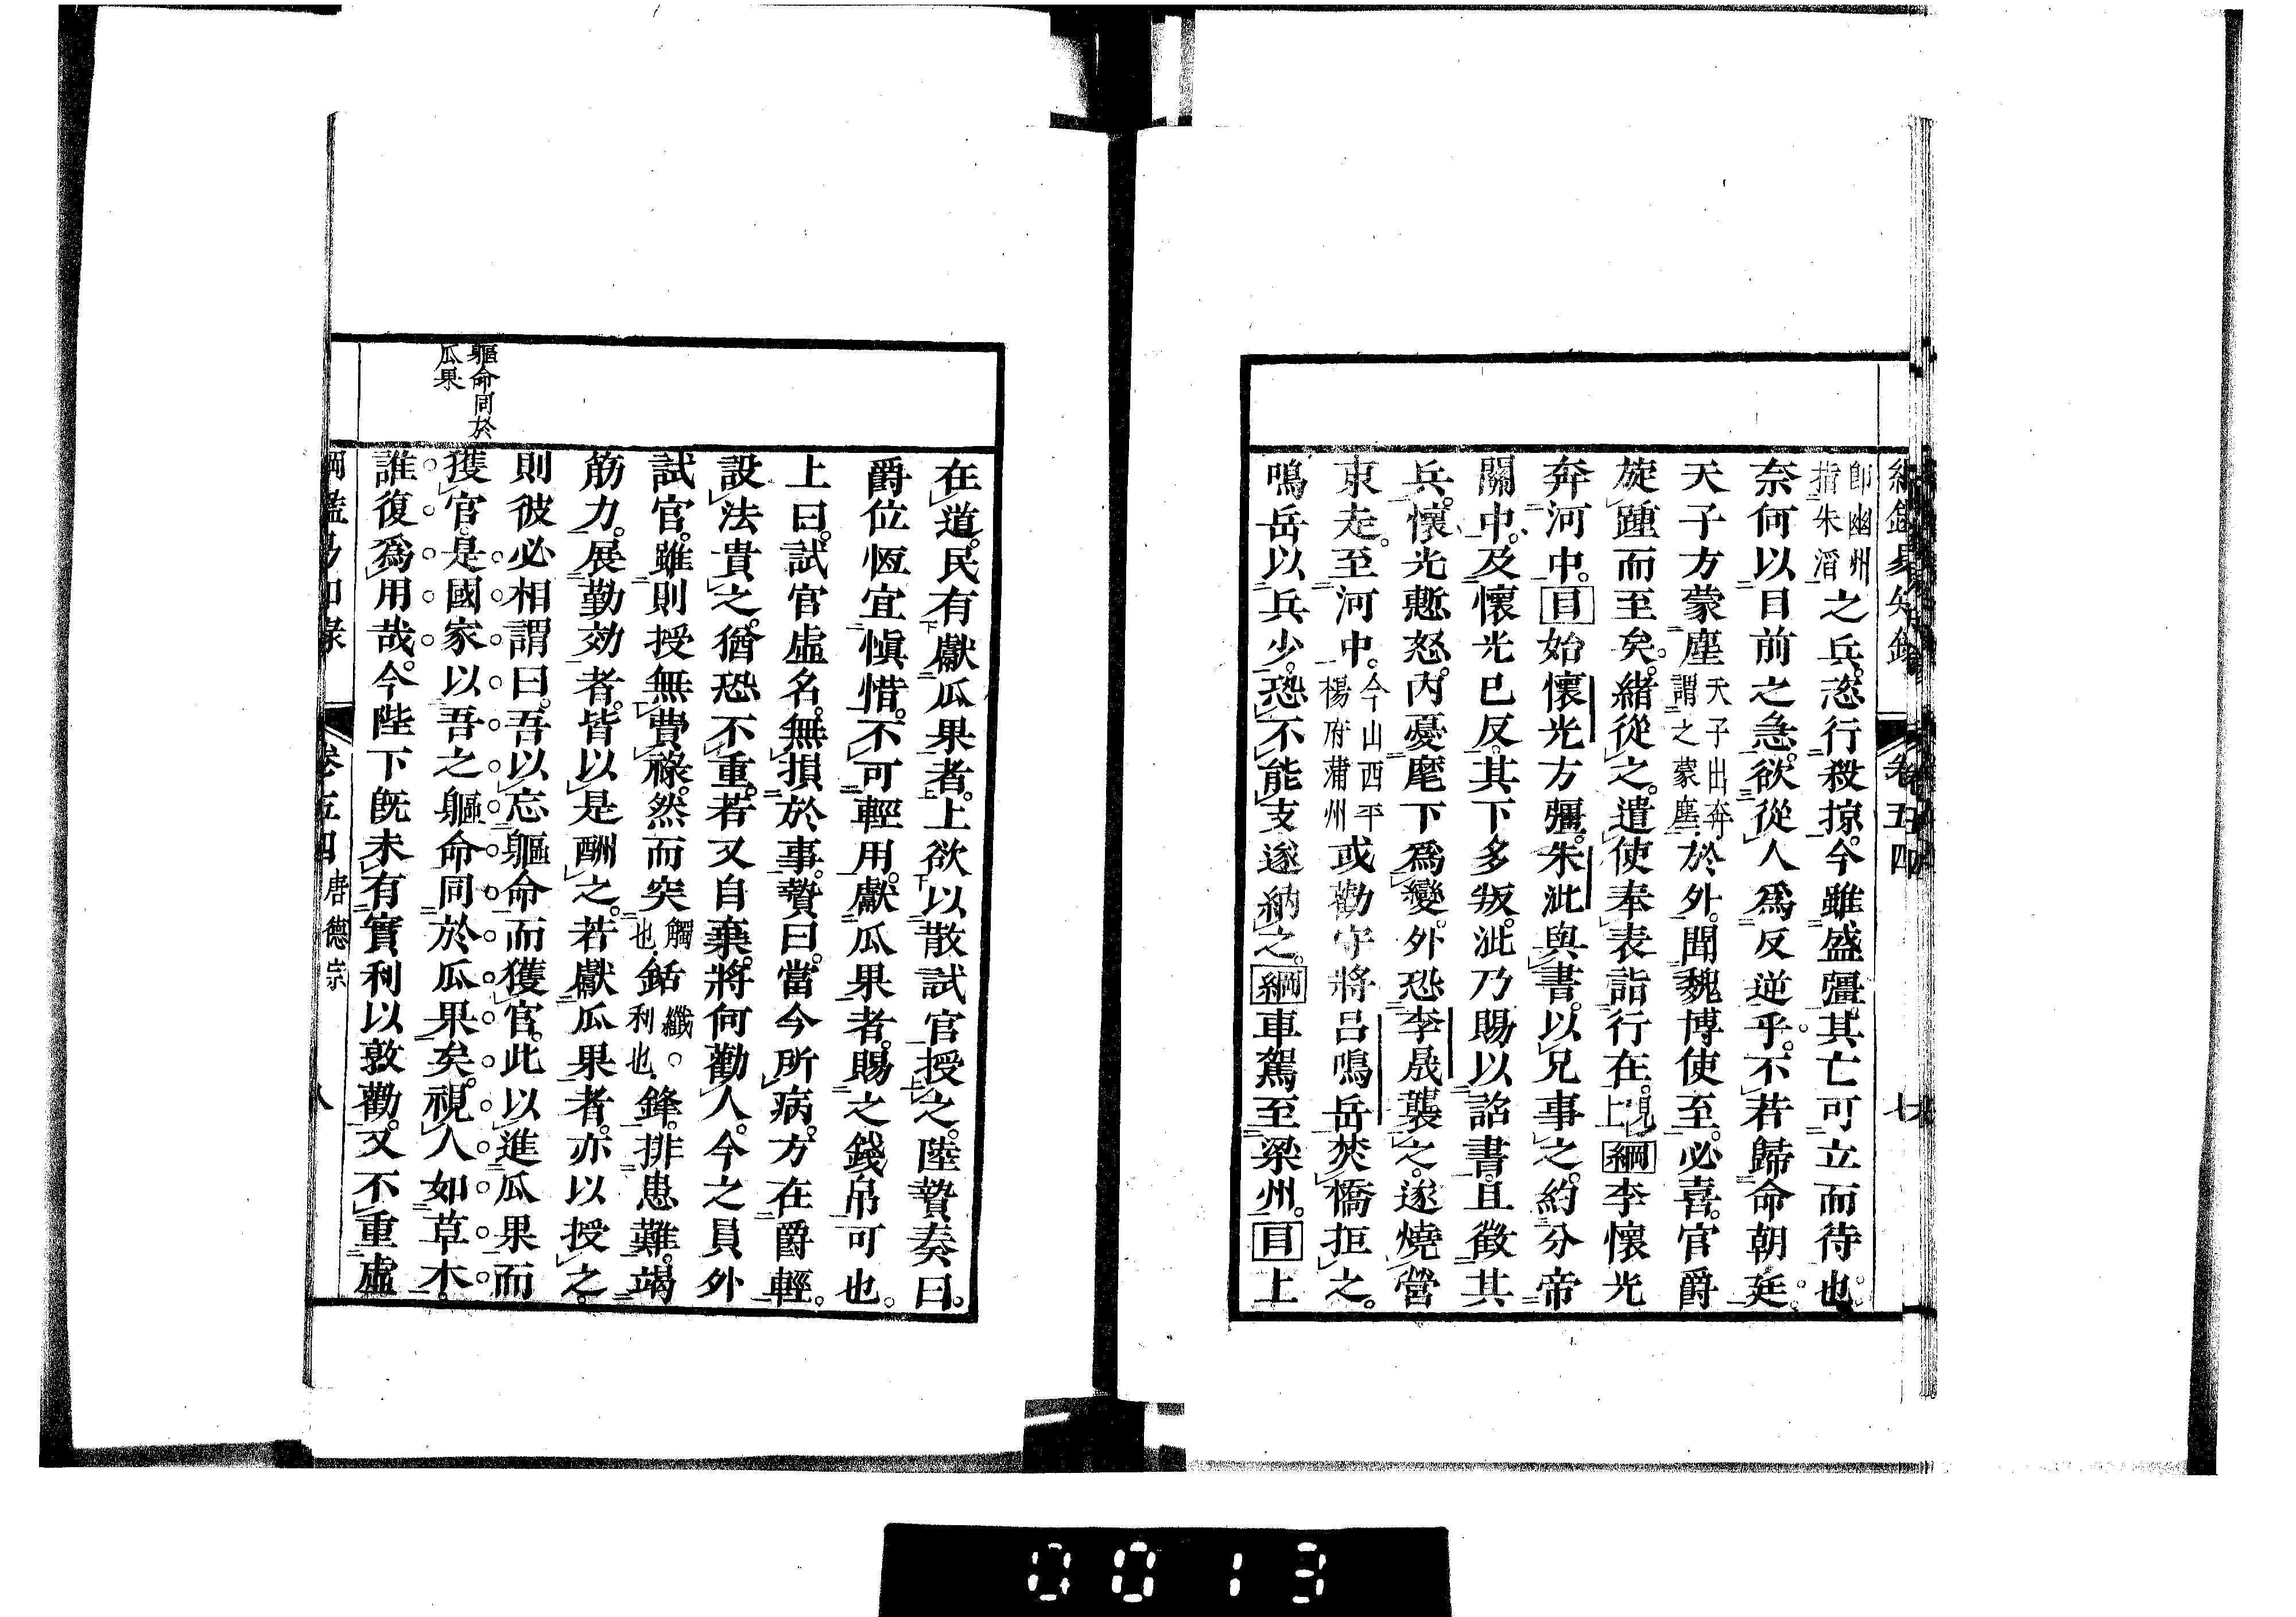 綱鑑易知錄 卷五四 七
卽幽州指朱滔之兵。恣行殺掠。今雖盛彊。其亡可立而待也。
奈何以目前之急。欲從人爲反逆乎。不若歸命朝廷。
天子方蒙塵天子出奔謂之蒙塵於外。聞魏博使至。必喜。官爵
旋踵而至矣。緖從之。遣使奉表詣行在。上 綱李懷光
奔河中。目始懷光方彊。朱泚與書。以兄事之。約分帝
關中。及懷光已反。其下多叛。泚乃賜以詔書。且徵其
兵。懷光慙怒。內憂麾下爲變。外恐李晟襲之。遂燒營
東走。至河中。今山西平楊府蒲州或勸守將呂鳴岳焚橋拒之。
鳴岳以兵少。恐不能支遂納之。綱車駕至梁州。目上
在道。民有獻瓜果者。上欲以散試官授之。陸贄奏曰。
爵位恆宜愼惜。不可輕用。獻瓜果者。賜之錢帛可也。
上曰。試官虛名。無損於事。贄曰。當今所病。方在爵輕。
設法貴之。猶恐不重。若又自棄。將何勸人。今之員外
試官。雖則授無費祿。然而突觸也。銛纖。利也。鋒。排患難。竭
筋力。展勤効者。皆以是酬之。若獻瓜果者。亦以授之。
則彼必相謂曰。吾以忘軀命而獲官。此以進瓜果而
獲官。是國家以吾之軀命同於瓜果矣。視人如草木。
誰復爲用哉。今陛下旣未有實利以敦勸。又不重虛
軀命同於
瓜果
綱鑑易知錄 卷五四 唐德宗 八
0013